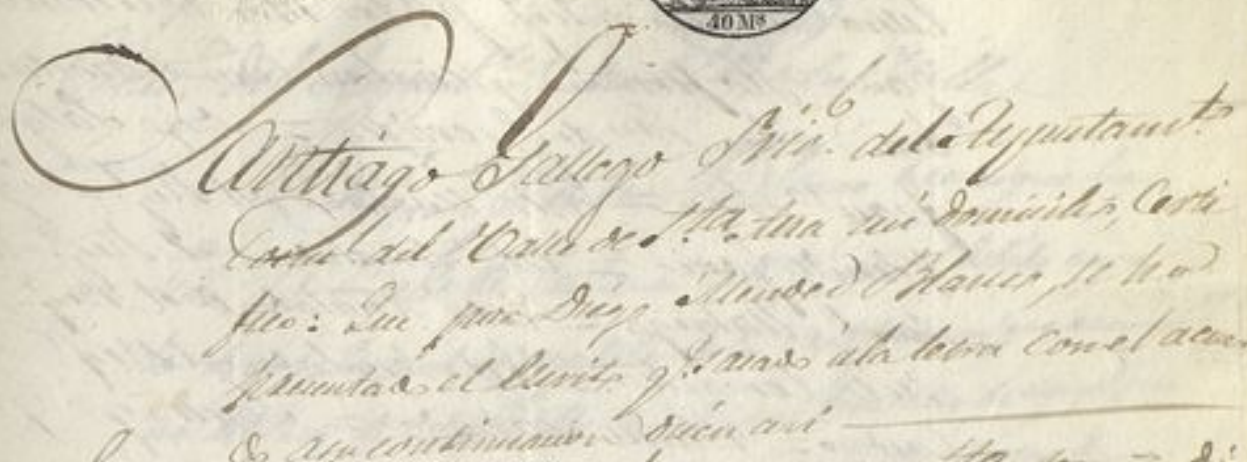 40 Ms
Santiago Gallego Srio. del Ayuntamto.
del Valle de Sta. Ana mi domicilio, Certi
fico: Que por Diego Mendez Blanco, se ha
presentado el escrito q. sacado ála letra con el acuer
do asu continuacion dicen asi